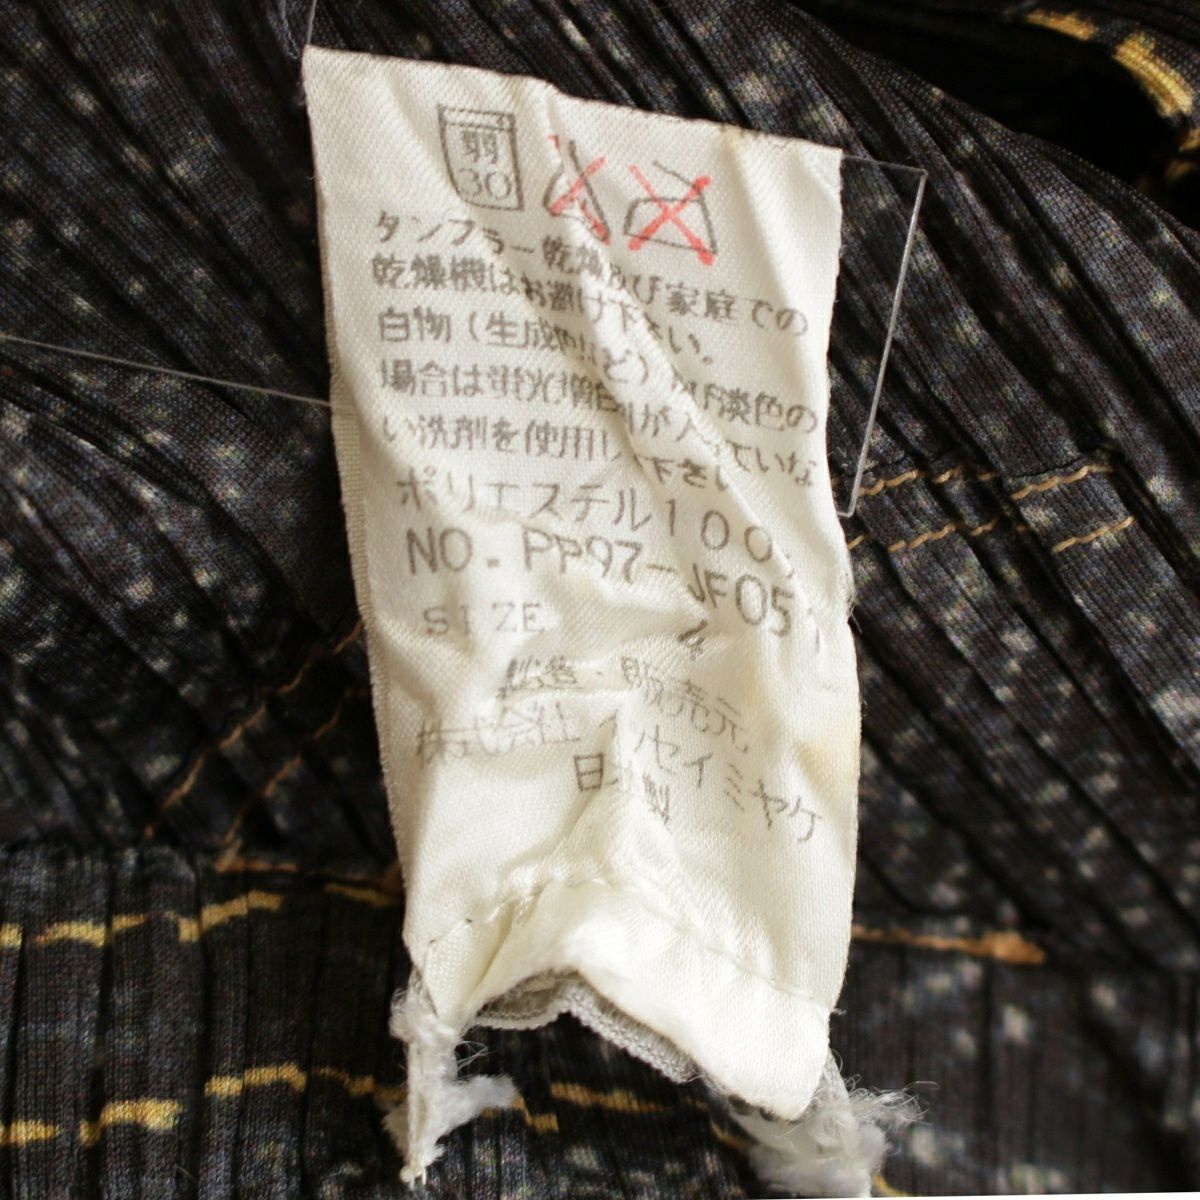 弱
30
タンブラー乾燥及び家庭での
乾燥機はお避け下さい。
白物（生成など）及び淡色の
場合は蛍光増白剤が入っていな
い洗剤を使用して下さい
ポリエステル100
NO. PP97-JF05
SIZE 4
製造・販売元
株式会社イッセイミヤケ
日本製